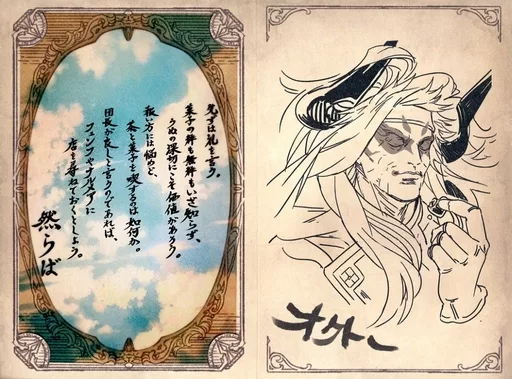 先ずは礼を言う。
菓子の絆も無絆もいざ知らず、
うぬの深切にこそ価値があろう。
扱い方には悩めど、
茶と菓子を喫するのは如何か。
団長が良しと言うのであれば、
フェンフやナルメアに
店を尋ねておくとしよう。
然らば
オクトー